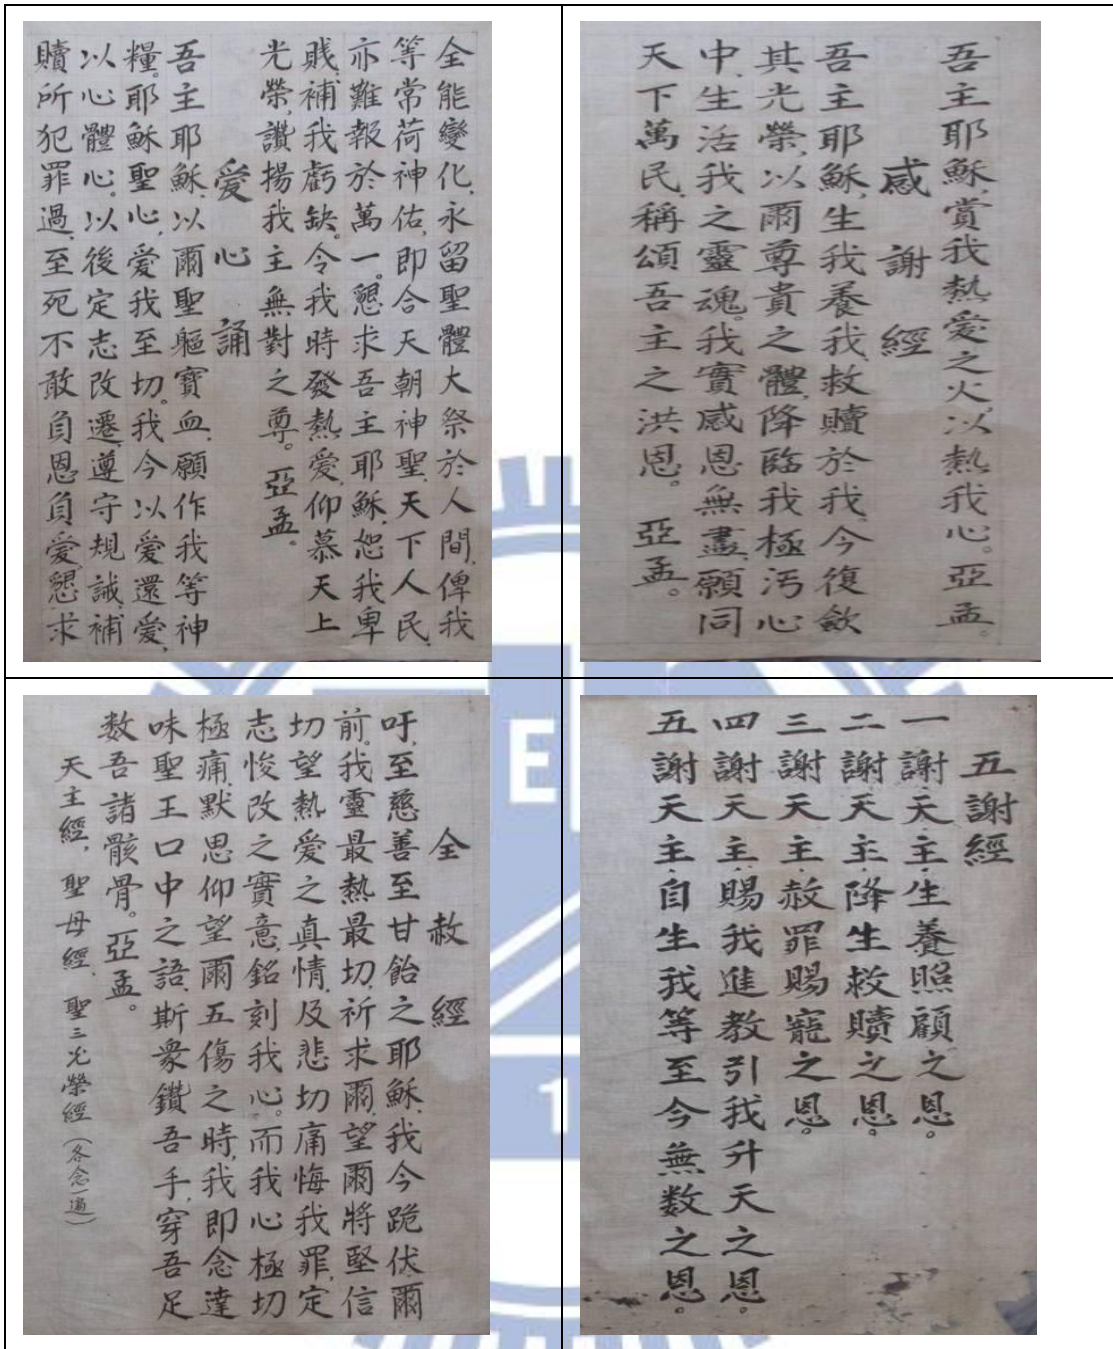 全能變化,永留聖體大祭於人間,俾我
等常荷神佑,即合天朝神聖,天下人民,
亦難報於萬一。懇求吾主耶穌,恕我卑
賎,補我虧缺。令我時發熱愛,仰慕天上
光榮,讚揚我主無對之尊。亞孟。
愛心誦
吾主耶穌,以爾聖軀寶血,願作我等神
糧。耶穌聖心,愛我至切。我今以愛還愛,
以心體心。以後定志改遷,遵守規誡,補
贖所犯罪過,至死不敢負恩負愛,懇求
吾主耶穌,賞我熱愛之火,以熱我心。亞孟。
感謝經
吾主耶穌,生我養我,救贖於我。今復斂
其光榮,以爾尊貴之體,降臨我極污心
中,生活我之靈魂。我實感恩無盡,願同
天下萬民,稱頌吾主之洪恩。亞孟。
全赦經
吁,至慈善至甘飴之耶穌,我今跪伏爾
前。我靈最熱最切,祈求爾,望爾將堅信
切望熱愛之真情,及悲切痛悔我罪,定
志悛改之實意,銘刻我心。而我心極切
極痛,默思仰望爾五傷之時,我即念達
味聖王口中之語,斯衆鑽吾手,穿吾足
数吾諸骸骨。亞孟。
天主經,聖母經,聖三光榮經(各念一遍)
五謝經
一謝天主,生養照顧之恩。
二謝天主,降生救贖之恩。
三謝天主,赦罪賜寵之恩。
四謝天主,賜我進教引我升天之恩。
五謝天主,自生我等至今無数之恩。